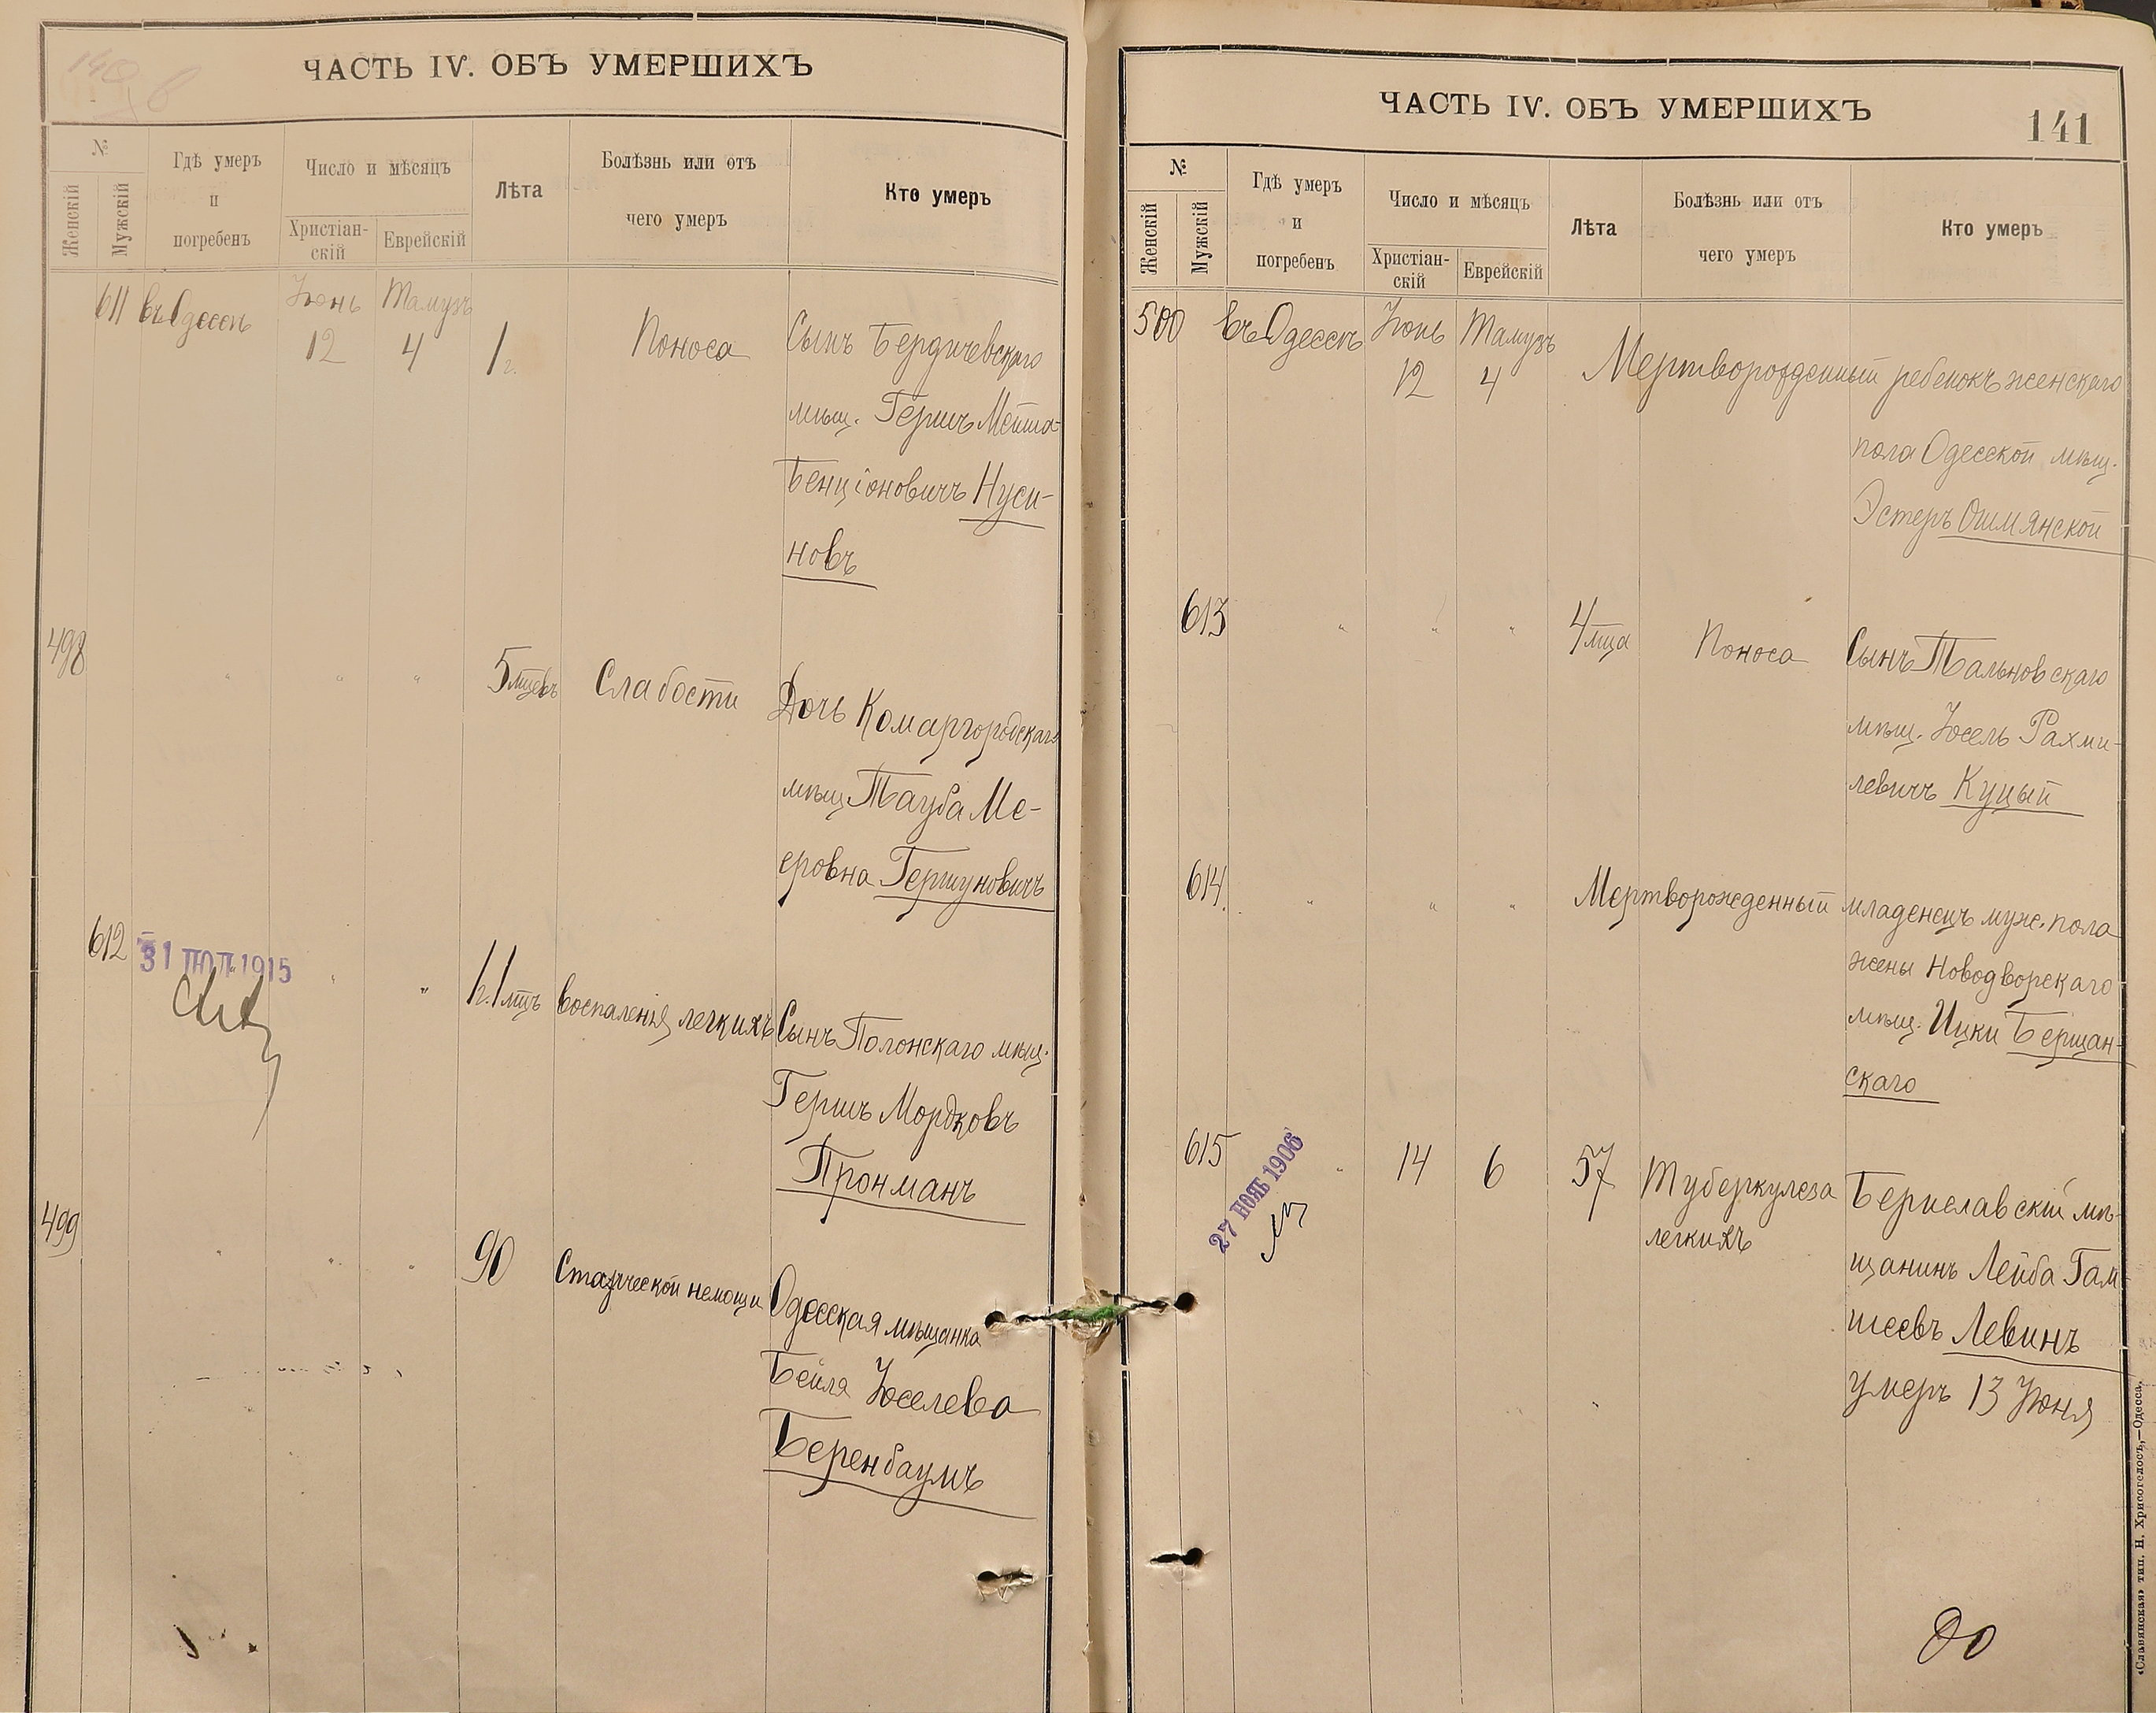 ЧАСТЬ IV. ОБЪ УМЕРШИХЪ
№
Женскій
Мужскій
Гдѣ умеръ
и
погребенъ
Число и мѣсяцъ
Христіан-
скій
Еврейскій
Лѣта
Болѣзнь или отъ
чего умеръ
Кто умеръ
611 въ Одессѣ Іюнь Тамузъ
12 4 1 г. Поноса Сынъ Бердичевскаго
мѣщ. Гершъ Мойша-
Бенціоновичъ Нуси-
новъ
498 " " " 5 мцевъ Слабости Дочь Комаргородскаго
мѣщ Тауба Ме-
еровна Гершуновичъ
612 31 ІЮЛ 1915 " " 1 г. 1 мцъ воспаленія легкихъ Сынъ Полонскаго мѣщ.
Гершъ Мордковъ
Пронманъ
499 " " " 90 Старческой немощи Одесская мѣщанка
Бейля Іоселева
Беренбаумъ
ЧАСТЬ IV. ОБЪ УМЕРШИХЪ
141
№
Женскій
Мужскій
Гдѣ умеръ
и
погребенъ
Число и мѣсяцъ
Христіан-
скій
Еврейскій
Лѣта
Болѣзнь или отъ
чего умеръ
Кто умеръ
500 въ Одессѣ Іюнь Тамузъ
12 4 Мертворожденный ребенокъ женскаго
пола Одесской мѣщ.
Эстеръ Ошмянской
613 " " " 4 мца Поноса Сынъ Тальновскаго
мѣщ. Іосель Рахми-
левичъ Куцый
614. " " " Мертворожденный младенецъ муж. пола
жены Новодворскаго
мѣщ. Ицки Бершан-
скаго
615 27 НОЯБ 1906 " 14 6 57 Туберкулеза
легкихъ
Бериславскій мѣ-
щанинъ Лейба Гам-
шеевъ Левинъ
умеръ 13 Іюня
«Славянская» тип. Н. Хрисогелосъ,—Одесса.